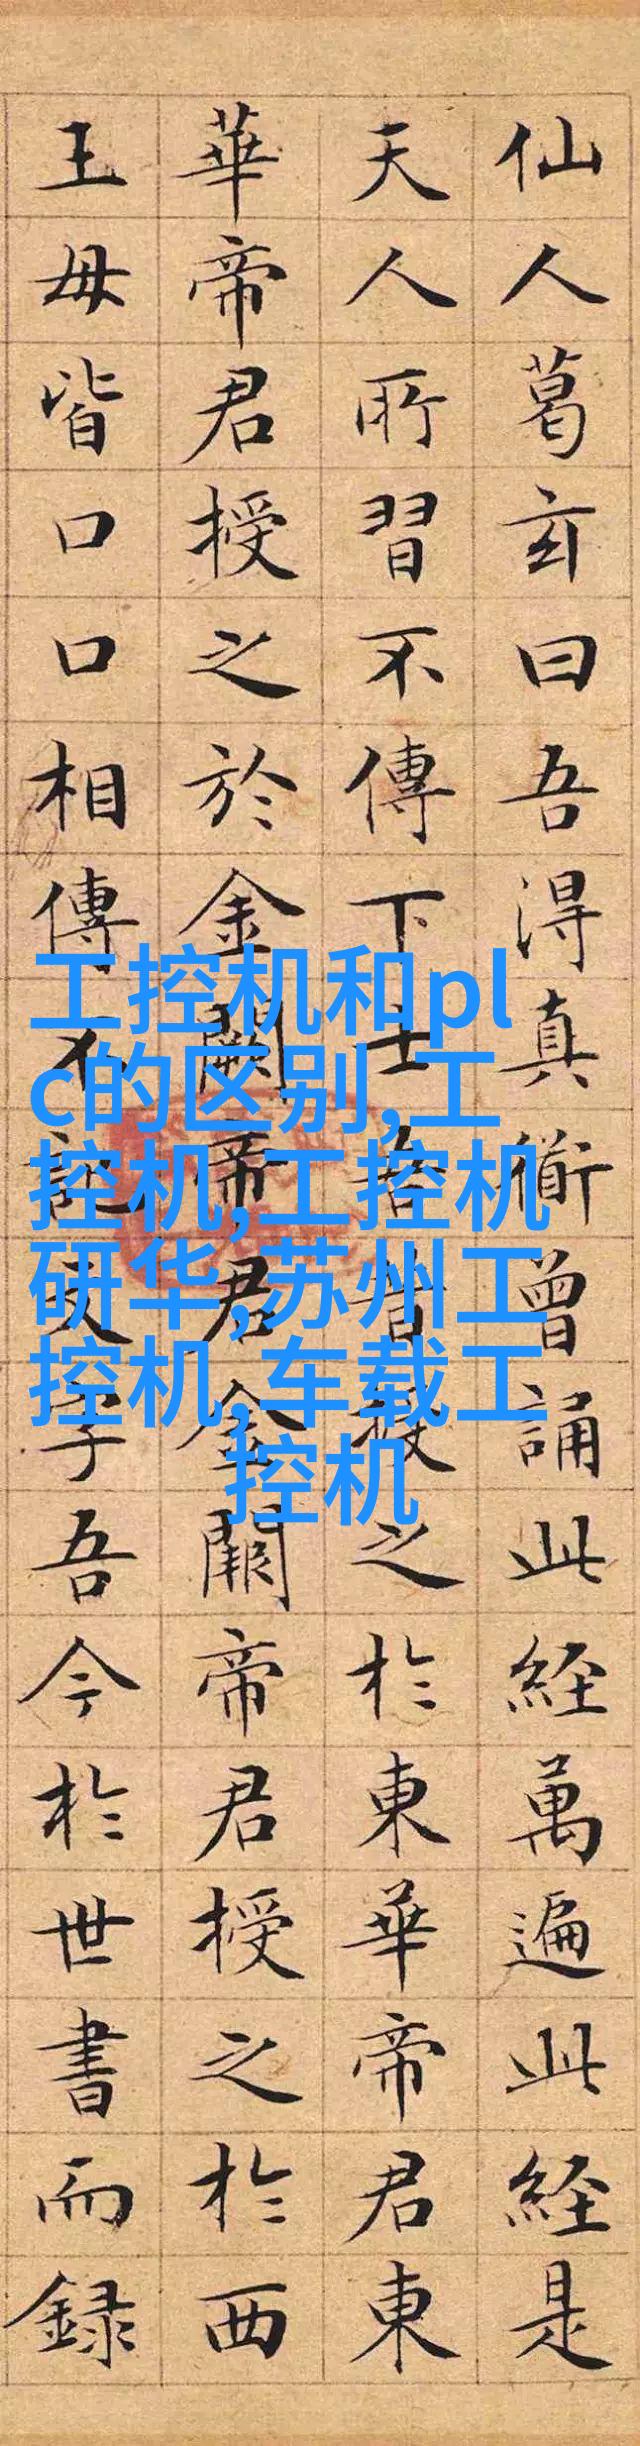 仙人葛玄曰吾淂真衜曾誦此経萬遍此経是
天人所習不傳下士吾昔授之於東華帝君東
華帝君授之於金闕帝君金闕帝君授之於西
王母皆口口相傳不記文字吾今於世書而録
工控机和pl
c的区别,工
控机,工控机
研华,苏州工
控机,车载工
控机